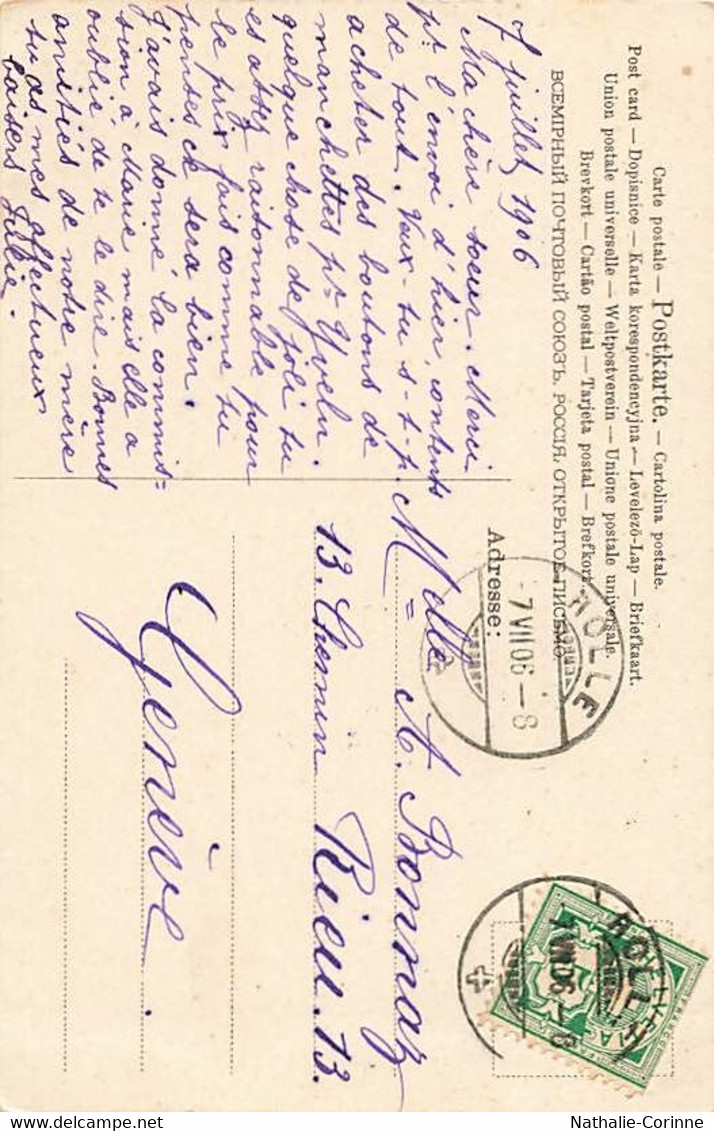 Carte postale – Postkarte. – Cartolina postale.
Post card – Dopisnice – Karta korespondencyjna – Levelező-Lap – Briefkaart.
Union postale universelle – Weltpostverein – Unione postale universale.
Brevkort – Cartão postal – Tarjeta postal – Brefkort
ВСЕМІРНЫЙ ПОЧТОВЫЙ СОЮЗЪ. РОССІЯ. ОТКРЫТОЕ ПИСЬМО
7 juillet 1906
Ma chère soeur. Merci
pr l'envoi d'hier, contents
de tout. Veux-tu s-t-p.
acheter des boutons de
manchettes pr
quelque chose de joli tu
es assez raisonnable pour
le prix fais comme tu
penses ce sera bien.
J'avais donné la commis=
sion à Marie mais elle a
oublié de te le dire. Bonnes
amitiés de notre mère
tu as mes affectueux
baisers
Adresse:
Melle A. Bonnaz
13. Chemin Rieu. 13.
Genève.
ROLLE
7 VII 06 – 8
ROLLE
7 VII 06 – 8
HELVETIA
FRANCO
Nathalie-Corinne